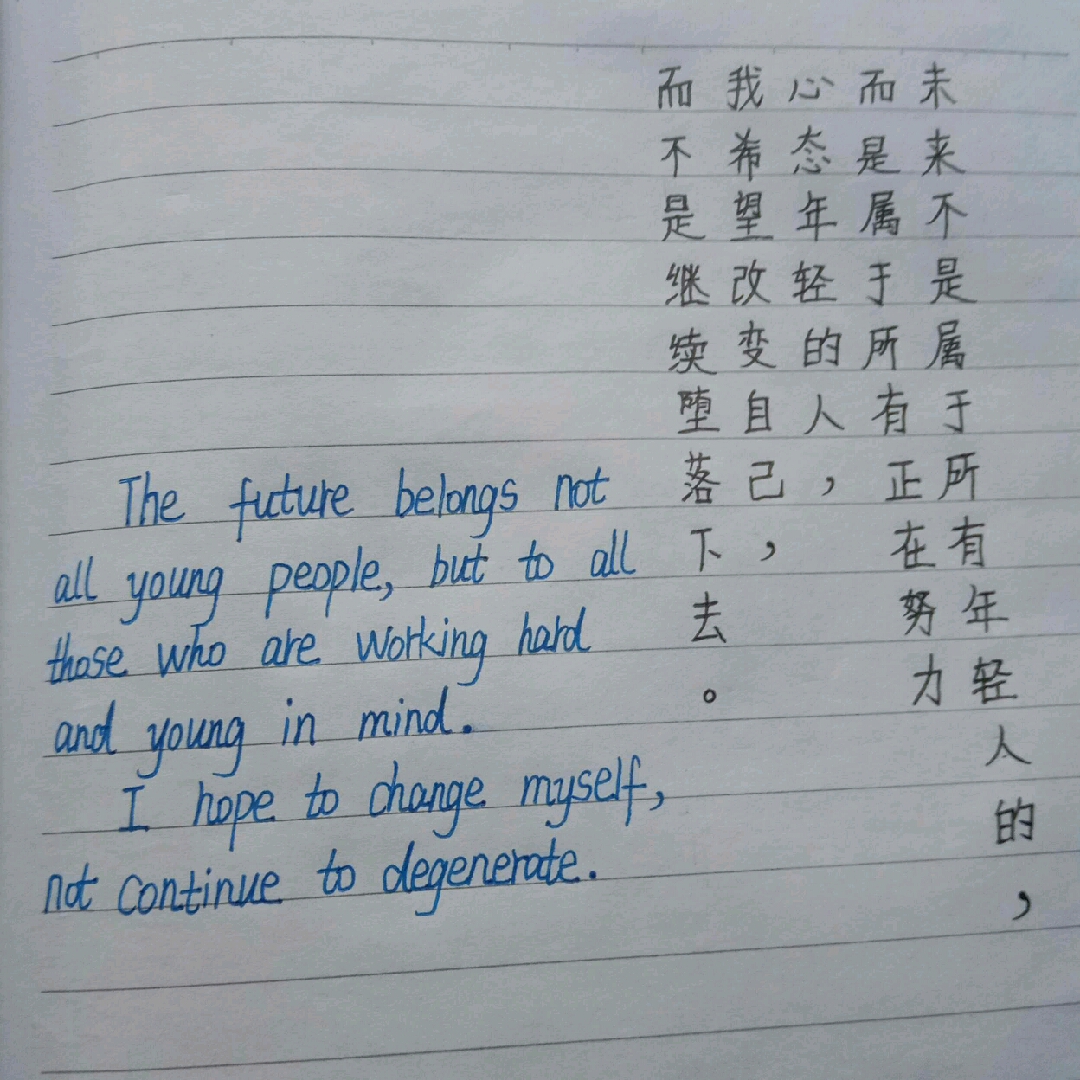 未来不是属于所有年轻人的，
而是属于所有正在努力
心态年轻的人，
我希望改变自己，
而不是继续堕落下去。
The future belongs not
all young people, but to all
those who are working hard
and young in mind.
I hope to change myself,
not continue to degenerate.